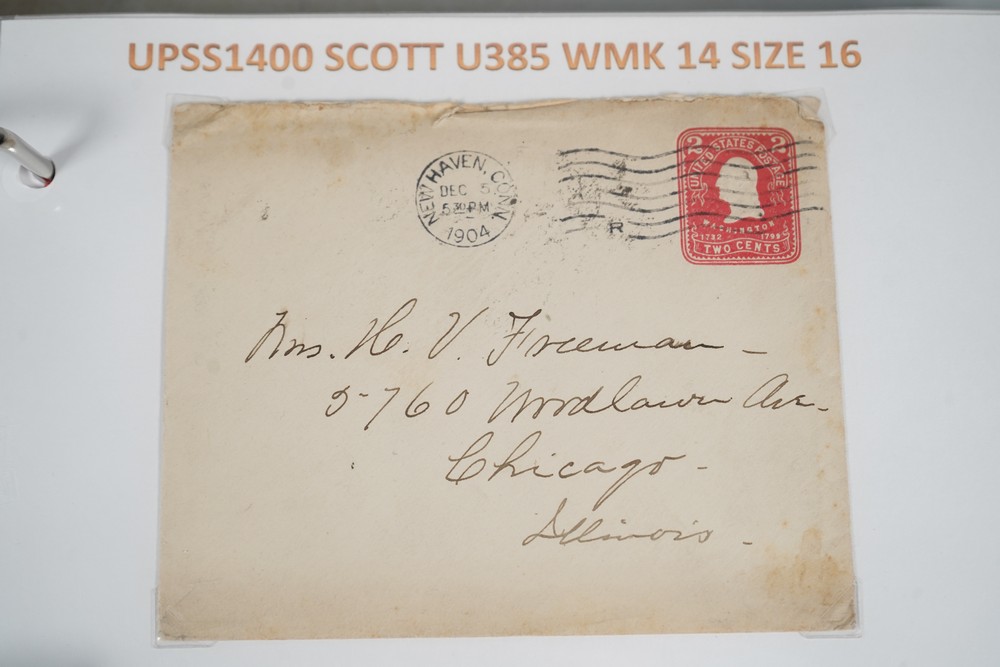 UPSS1400 SCOTT U385 WMK 14 SIZE 16
NEW HAVEN, CONN.
DEC 5
5 30 PM
1904
R
2 2
UNITED STATES POSTAGE
WASHINGTON
1732 1799
TWO CENTS
Mrs. H. V. Freeman -
5760 Woodlawn Ave.
Chicago -
Illinois -